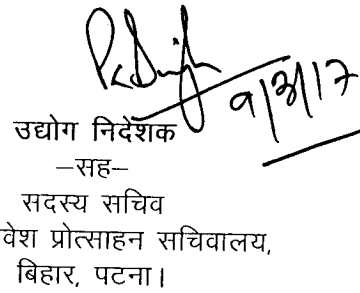 9/3/17
उद्योग निदेशक
–सह–
सदस्य सचिव
वेश प्रोत्साहन सचिवालय,
बिहार, पटना।